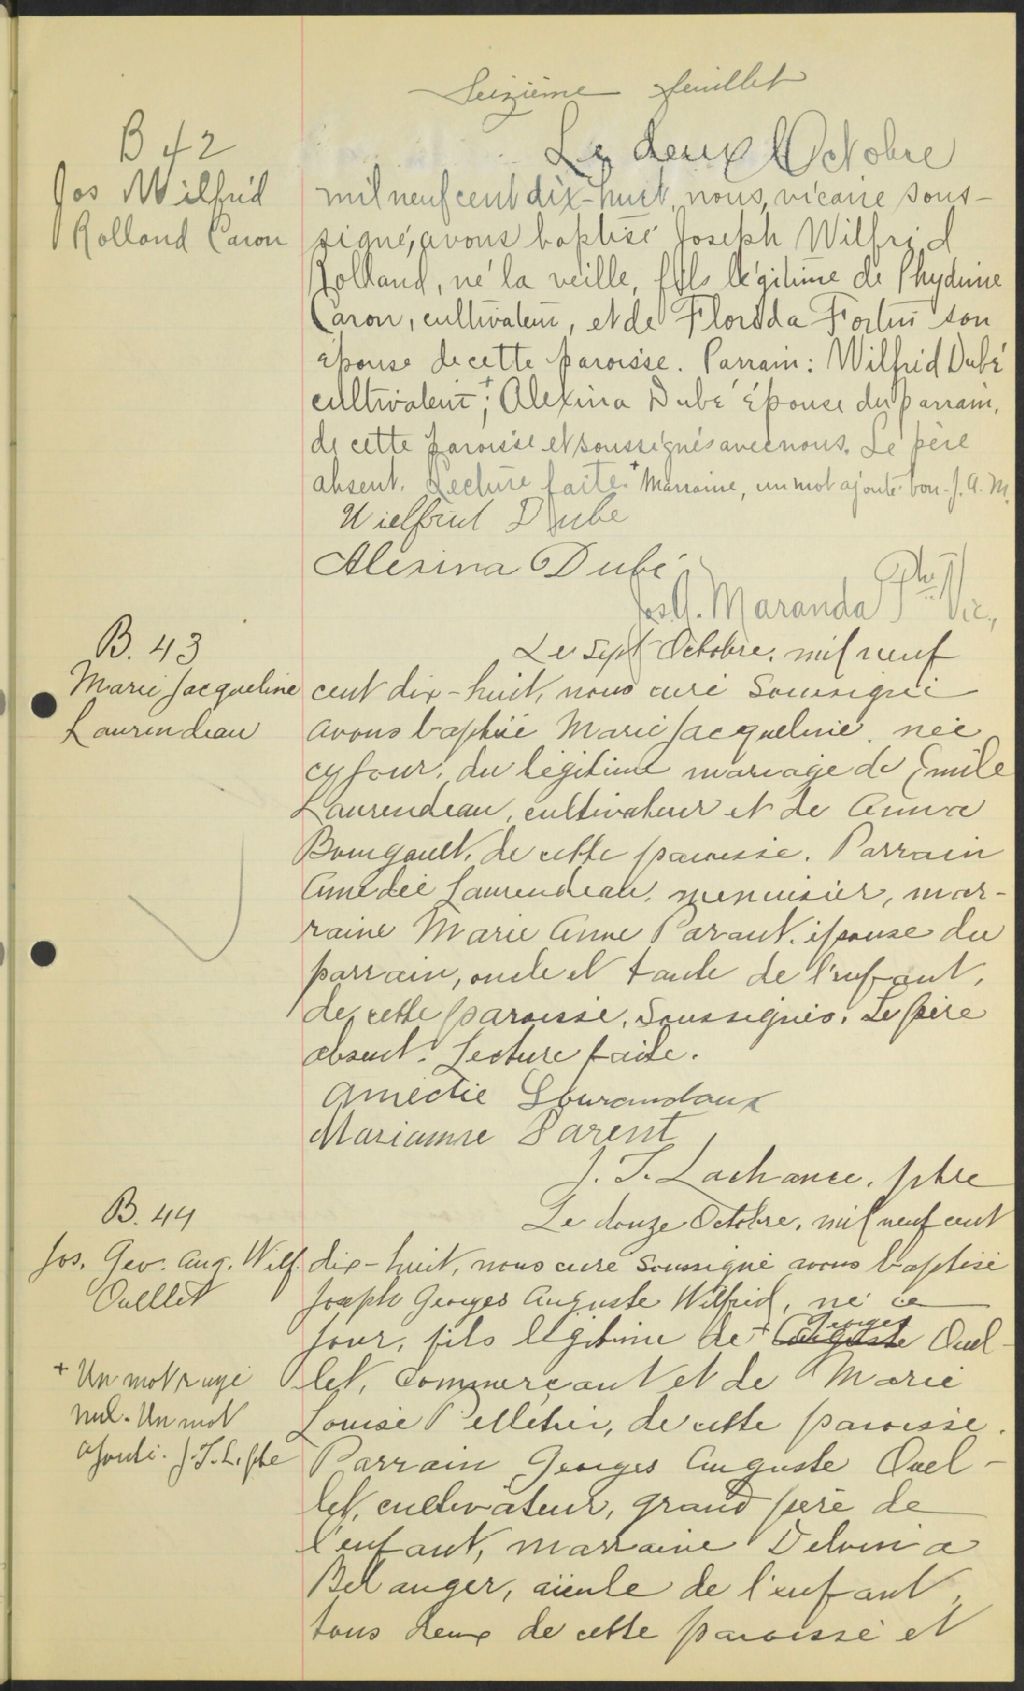 Seizième feuillet
B 42
Jos Wilfrid
Rolland Caron
Le deux Octobre
mil neuf cent dix-huit, nous, vicaire sous-
signé, avons baptisé Joseph Wilfrid
Rolland, né la veille, fils légitime de Phydime
Caron, cultivateur, et de Florida Fortin son
épouse de cette paroisse. Parrain: Wilfrid Dubé
cultivateur +; Alexina Dubé épouse du parrain,
de cette paroisse et soussignés avec nous. Le père
absent. Lecture faite. + Marraine, un mot ajouté bon. J. A. M.
Wielfrid Dube
Alexina Dubé
Jos. A. Maranda Ptre Vic.,
B. 43
Marie Jacqueline
Laurendeau
Le sept Octobre, mil neuf
cent dix-huit, nous curé soussigné
avons baptisé Marie Jacqueline, née
ce jour, du légitime mariage de Emile
Laurendeau, cultivateur et de Anna
Bourgault, de cette paroisse. Parrain
Amedée Laurendeau, menuisier, mar-
raine Marie Anne Parant, épouse du
parrain, oncle et tante de l'enfant,
de cette paroisse, soussignés. Le père
absent. Lecture faite.
Amédie Lourandaux
Marianne Parent
J. T. Lachance, ptre
B. 44
Jos. Geo. Aug. Wilf.
Ouellet
Le douze Octobre, mil neuf cent
dix-huit, nous curé soussigné avons baptisé
Joseph Georges Auguste Wilfrid, né ce
jour, fils légitime de + Georges Auguste Ouel-
let, commerçant et de Marie
Louise Pelletier, de cette paroisse.
+ Un mot rayé
nul. Un mot
ajouté. J.T.L. ptre
Parrain Georges Auguste Ouel-
let, cultivateur, grand père de
l'enfant, marraine Delvina
Belanger, aïeule de l'enfant,
tous deux de cette paroisse et